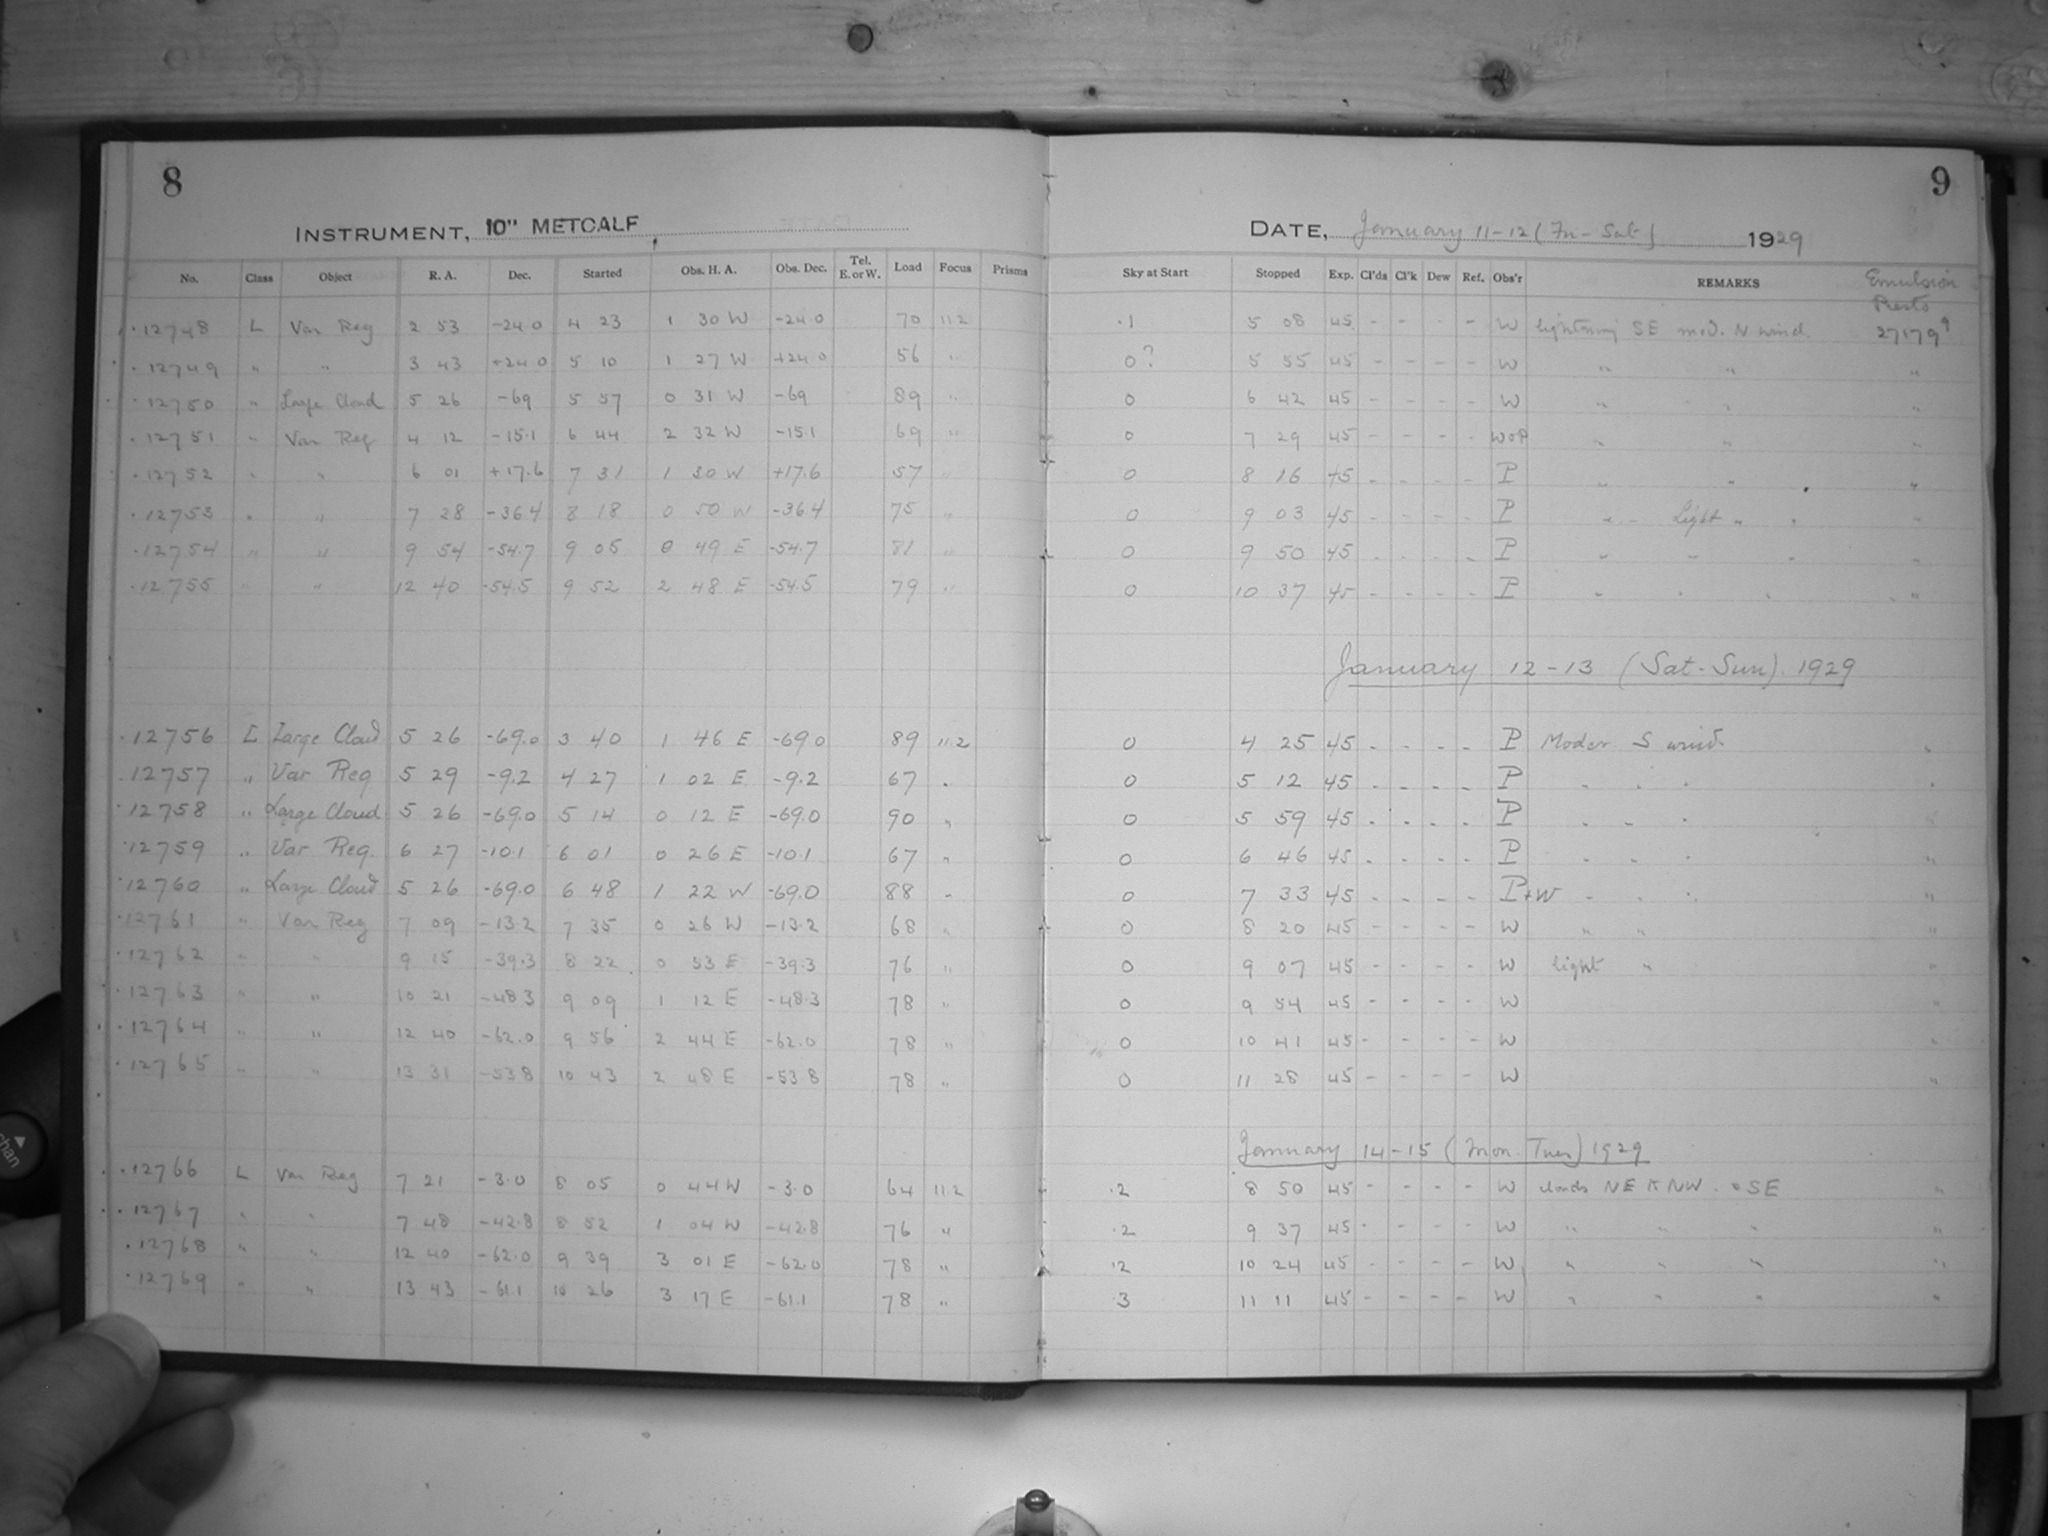 8
INSTRUMENT, 10" METCALF
No. Class Object R. A. Dec. Started Obs. H. A. Obs. Dec. Tel. E. or W. Load Focus Prisms
12748 L Var Reg 2 53 -24.0 4 23 1 30 W -24.0 70 11.2
12749 " " 3 43 +24.0 5 10 1 27 W +24.0 56 "
12750 " Large Cloud 5 26 -69 5 57 0 31 W -69 89 "
12751 " Var Reg 4 12 -15.1 6 44 2 32 W -15.1 69 "
12752 " " 6 01 +17.6 7 31 1 30 W +17.6 57 "
12753 " " 7 28 -36.4 8 18 0 50 W -36.4 75 "
12754 " " 9 54 -54.7 9 05 0 49 E -54.7 81 "
12755 " " 12 40 -54.5 9 52 2 48 E -54.5 79 "
12756 L Large Cloud 5 26 -69.0 3 40 1 46 E -69.0 89 11.2
12757 " Var Reg 5 29 -9.2 4 27 1 02 E -9.2 67 "
12758 " Large Cloud 5 26 -69.0 5 14 0 12 E -69.0 90 "
12759 " Var Reg. 6 27 -10.1 6 01 0 26 E -10.1 67 "
12760 " Large Cloud 5 26 -69.0 6 48 1 22 W -69.0 88 "
12761 " Var Reg 7 09 -13.2 7 35 0 26 W -13.2 68 "
12762 " " 9 15 -39.3 8 22 0 53 E -39.3 76 "
12763 " " 10 21 -48.3 9 09 1 12 E -48.3 78 "
12764 " " 12 40 -62.0 9 56 2 44 E -62.0 78 "
12765 " " 13 31 -53.8 10 43 2 48 E -53.8 78 "
12766 L Var Reg 7 21 -3.0 8 05 0 44 W -3.0 64 11.2
12767 " " 7 48 -42.8 8 52 1 04 W -42.8 76 "
12768 " " 12 40 -62.0 9 39 3 01 E -62.0 78 "
12769 " " 13 43 -61.1 10 26 3 17 E -61.1 78 "
9
DATE, January 11-12 (Fri-Sat) 1929
Sky at Start Stopped Exp. Cl'ds Cl'k Dew Ref. Obs'r REMARKS Emulsion
Presto
.1 5 08 45 - - - W lightning SE mod. N wind 27179
0? 5 55 45 - - - - W " " "
0 6 42 45 - - - - W " " "
0 7 29 45 - - - - W " " "
0 8 16 45 - - - - P " " "
0 9 03 45 - - - - P " Light " " "
0 9 50 45 - - - - P " " " "
0 10 37 45 - - - - P " " " "
January 12-13 (Sat-Sun). 1929
0 4 25 45 - - - - P Moder. S wind "
0 5 12 45 - - - - P " " " "
0 5 59 45 - - - - P " " " "
0 6 46 45 - - - - P " " " "
0 7 33 45 - - - - P+W " " " "
0 8 20 45 - - - - W " " "
0 9 07 45 - - - - W light " "
0 9 54 45 - - - - W "
0 10 41 45 - - - - W "
0 11 28 45 - - - - W "
January 14-15 (Mon. Tues) 1929
.2 8 50 45 - - - - W clouds NE NW SE "
.2 9 37 45 - - - - W " " " "
.2 10 24 45 - - - - W " " " "
.3 11 11 45 - - - - W " " " "
chan